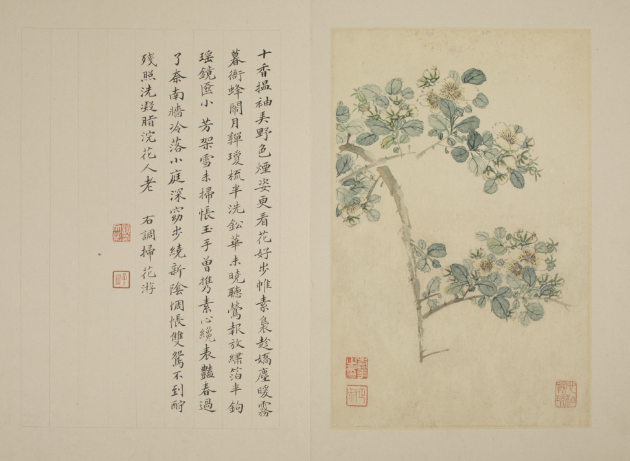 十香揾袖美野色煙姿更看花好步帷素裊趁嬌塵暖霧
暮衙蜂鬧月嚲瓊梳半洗鉛華未曉聽鶯報放繰箔半鉤
瑶鏡匳小 芳架雪未掃悵玉手曾攜素心纔表豔春過
了奈南牆冷落小庭深窈步繞新陰惆悵雙鴛不到酹
殘照洗凝脂浣花人老 右調掃花游